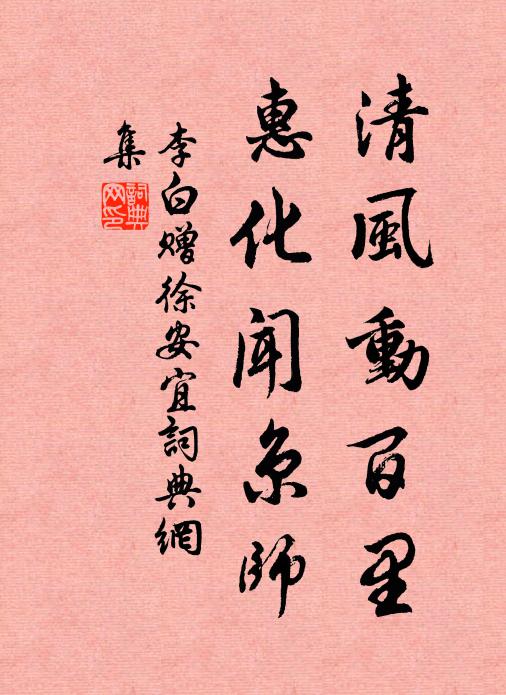 清風動百里
惠化聞京師
李白赠徐安宜詞典網
集
詞典
网印